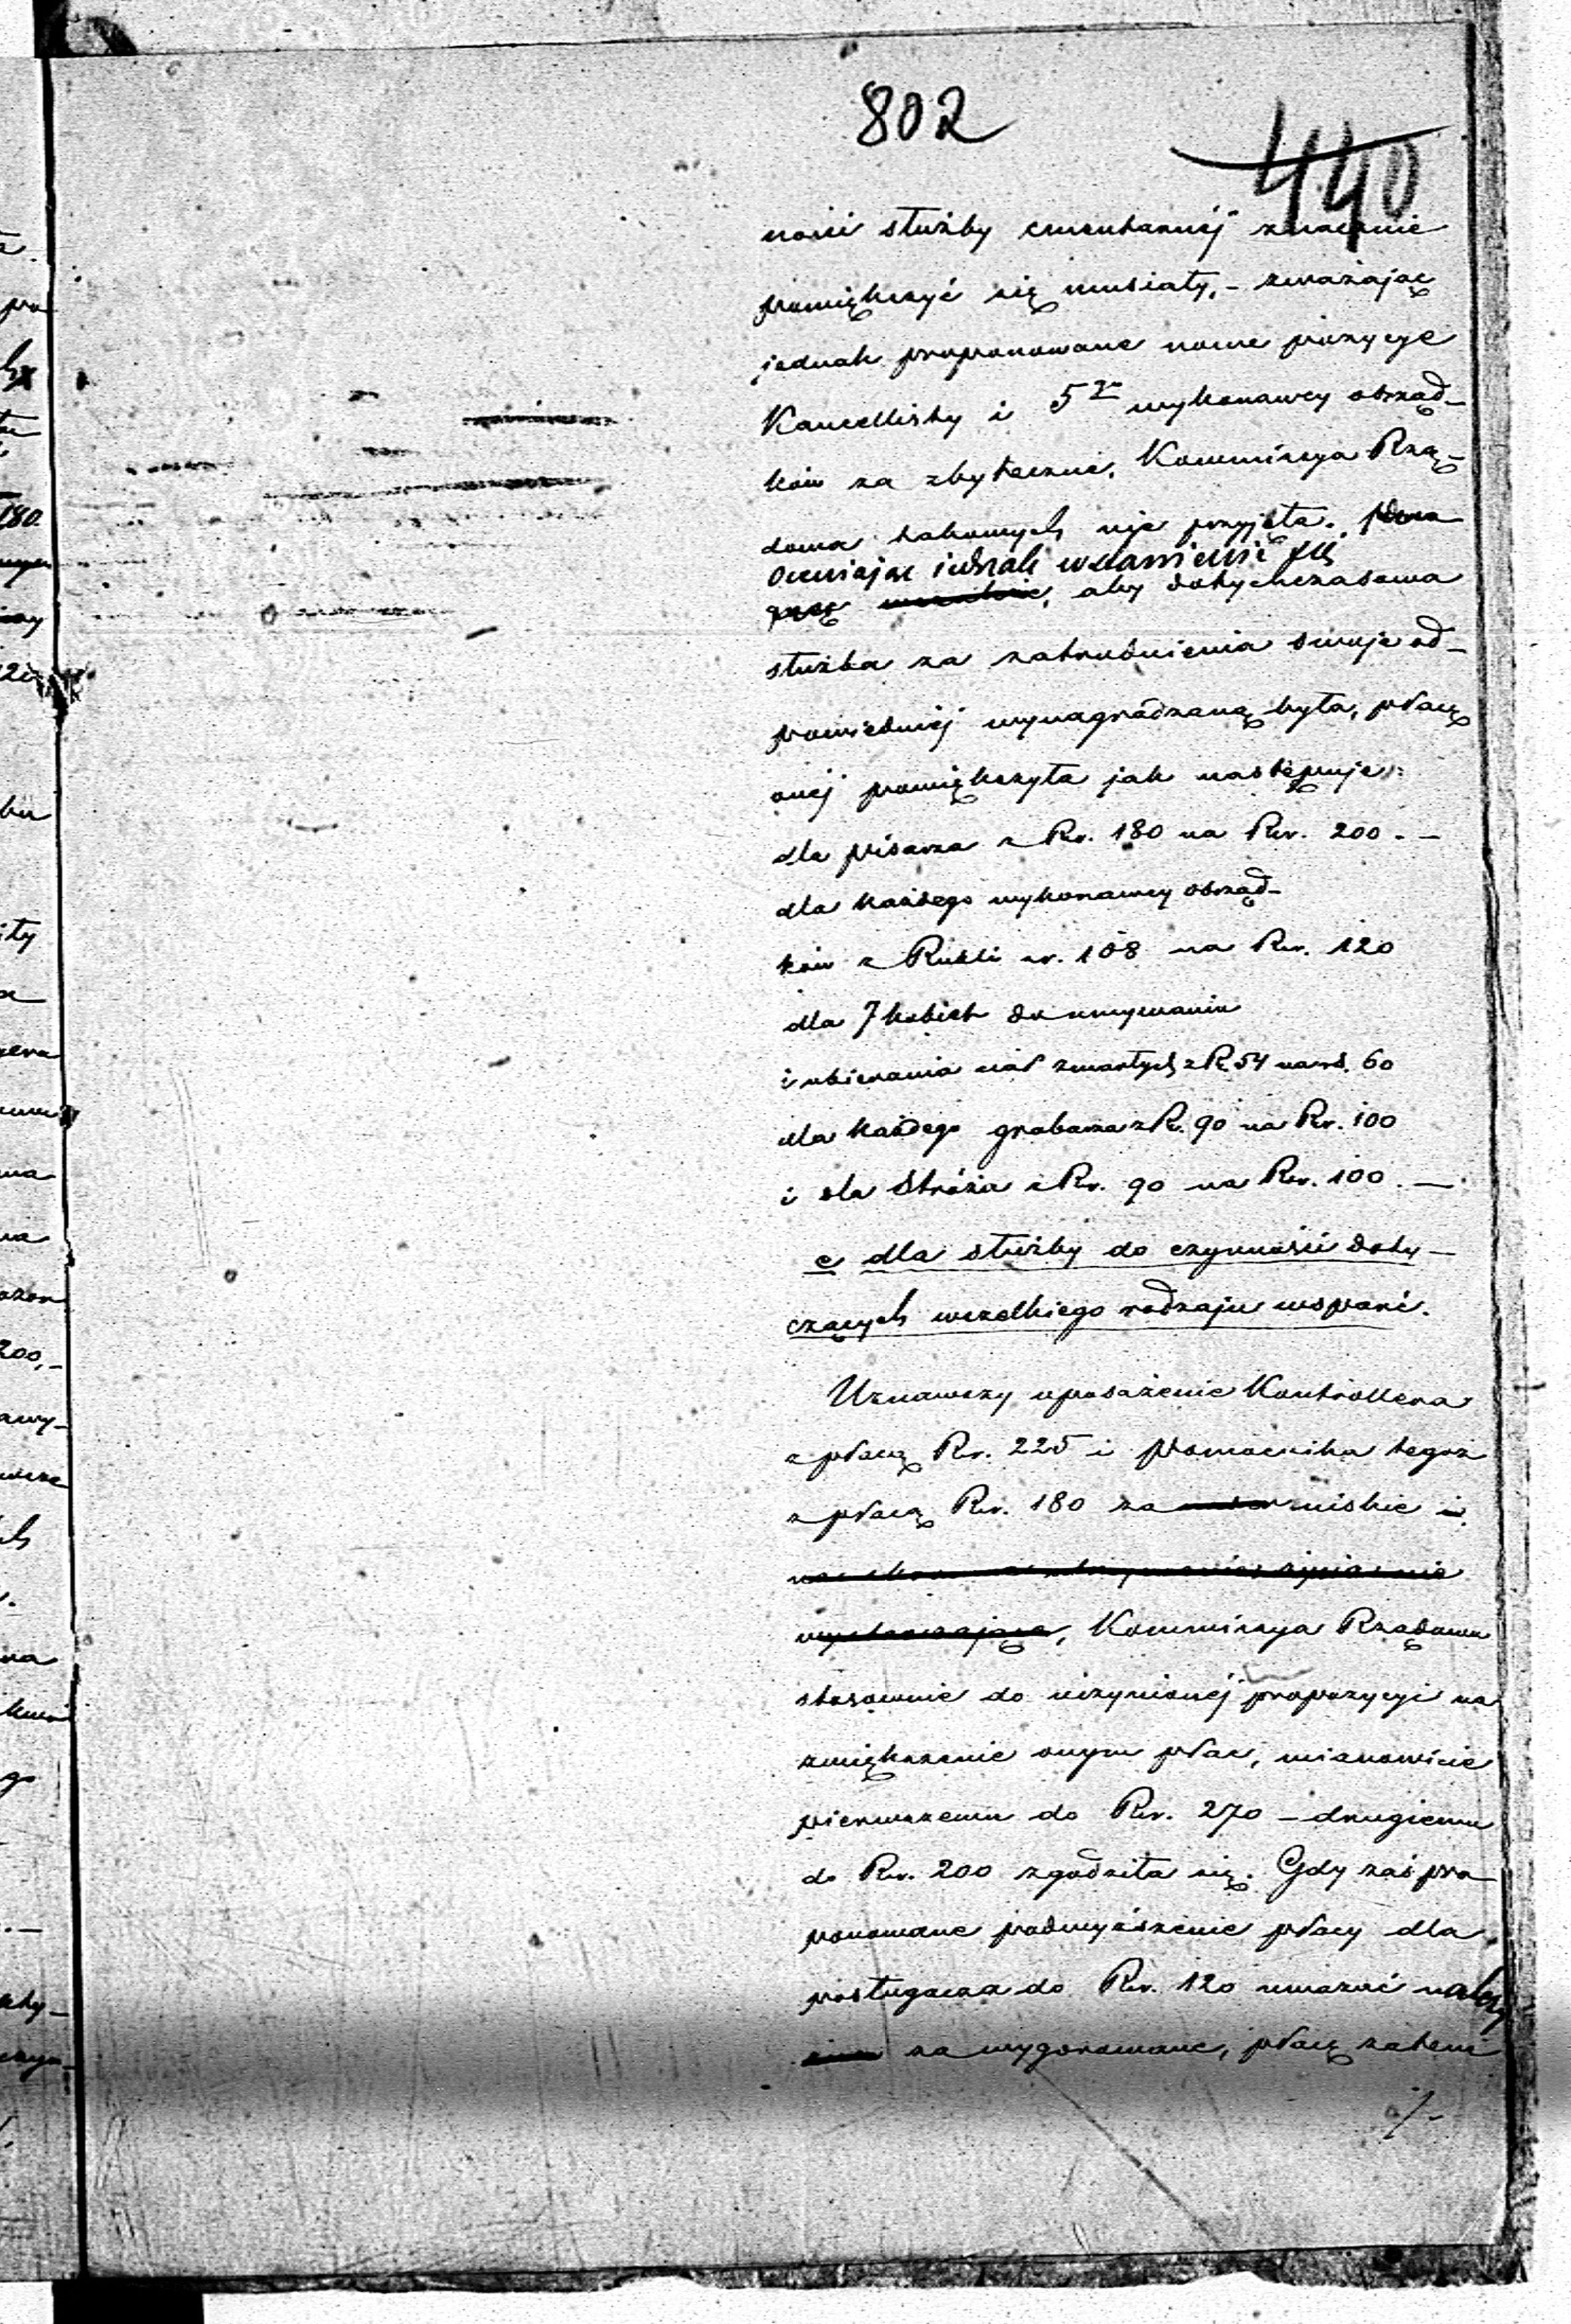 802
440
ności służby cmentarnéj znacznie
powiększyć się musiały, - zważając
jednak proponowane nowe pozycye
Kancellisty i 5go wykonawcy obrząd-
ków za zbyteczne, Kommissya Rzą-
dowa takowych nie przyjęła.
Oceniając jednak
aby dotychczasowa
służba za zatrudnienia swoje od-
powiedniéj wynagrodzaną była, płacę
onéj powiększyła jak następuje:
dla pisarza z Rsr. 180 na Rsr. 200 . -
dla każdego wykonawcy obrząd-
ków z Rubli sr. 108 na Rsr. 120
dla 7 kobiet do umywania
i ubierania ciał zmarłych z R. 54 na rs. 60
dla każdego grabarza z R. 90 na Rsr. 100
i dla Stróża z Rsr. 90 na Rsr. 100 . -
c dla służby do czynności doty-
czących wszelkiego rodzaju wsparć.
Uznawszy uposażenie Kontrollera
z płacą Rsr. 225 i Pomocnika tegoż
z płacą Rsr. 180 za niskie
Kommissya Rządowa
stosownie do uczynionéj propozycyi na
zwiększenie onym płac, mianowicie
pierwszemu do Rsr. 270 - drugiemu
do Rsr. 200 zgodziła się. Gdy zaś pro
ponowane podwyższenie płacy dla
posługacza do Rsr. 120 uważać należy
za wygórowane, płacę zatem
./-